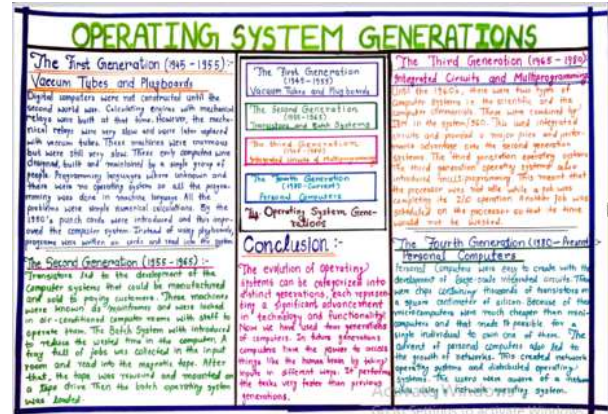 OPERATING SYSTEM GENERATIONS
The First Generation (1945 - 1955):-
Vaccum Tubes and Plugboards
Digital computers were not constructed until the
second world war. Calculating engines with mechanical
relays were built at that time. However, the mecha-
nical relays were very slow and were later replaced
with vacuum tubes. These machines were enormous
but were still very slow. These early computers were
designed, built and maintained by a single group of
people. Programming languages where unknown and
there were no operating system so all the progra-
mming was done in machine language. All the
problems were simple numerical calculations. By the
1950's punch cards were introduced and this impro-
ved the computer system. Instead of using plugboards,
programs were written on cards and read into the system.
The Second Generation (1955 - 1965):-
Transistors led to the development of the
Computer systems that could be manufactured
and sold to paying customers. These machines
were known as mainframes and were locked
in air-conditioned computer rooms with staff to
operate them. The Batch System with introduced
to reduce the wasted time in the computer. A
tray full of jobs was collected in the input
room and read into the magnetic tape. After
that, the tape was rewound and mounted on
a tape drive Then the batch operating system
was loaded.
The First Generation
(1945-1955)
Vaccum Tubes and Plugboards
The Second Generation
(1955-1965)
Transistors and Batch Systems
The third Generation
Integrated Circuits & Multiprogramming
The Fourth Generation
(1980-Current)
Personal Computers
Fig. Operating System Gene-
rations
Conclusion :-
The evolution of operating
systems can be categorized into
distinct generations, each represen-
ting a significant advancement
in technology and functionality.
Now we have used four generations
of computers. In future generations
computers have the power to access
things like the human brain by taking
inputs in different ways. It performs
the tasks very faster than previous
generations.
The Third Generation (1965 - 1980)
Integrated Circuits and Multiprogramming
Until the 1960s, there were two types of
Computer systems i.e the scientific and the
computer commercials. These were combined by
IBM in the system/360. This used integrated
circuits and provided a major price and perfor-
mance advantage over the second generation
systems. The third generation operating systems
The third generation operating systems also
introduced multiprogramming. This meant that
the processor was not idle while a job was
completing its I/O operation. Another job was
scheduled on the processor so that its time
would not be wasted.
The Fourth Generation (1980 - Present):-
Personal Computers
Personal Computers were easy to create with the
development of large-scale integrated circuits. These
were chips containing thousands of transistors on
a square centimeter of silicon. Because of these
microcomputers were much cheaper than mini-
computers and that made it possible for a
single individual to own one of them. The
advent of personal computers also led to
the growth of networks. This created network
operating systems and distributed operating
systems. The users were aware of a network
while using a network operating system.